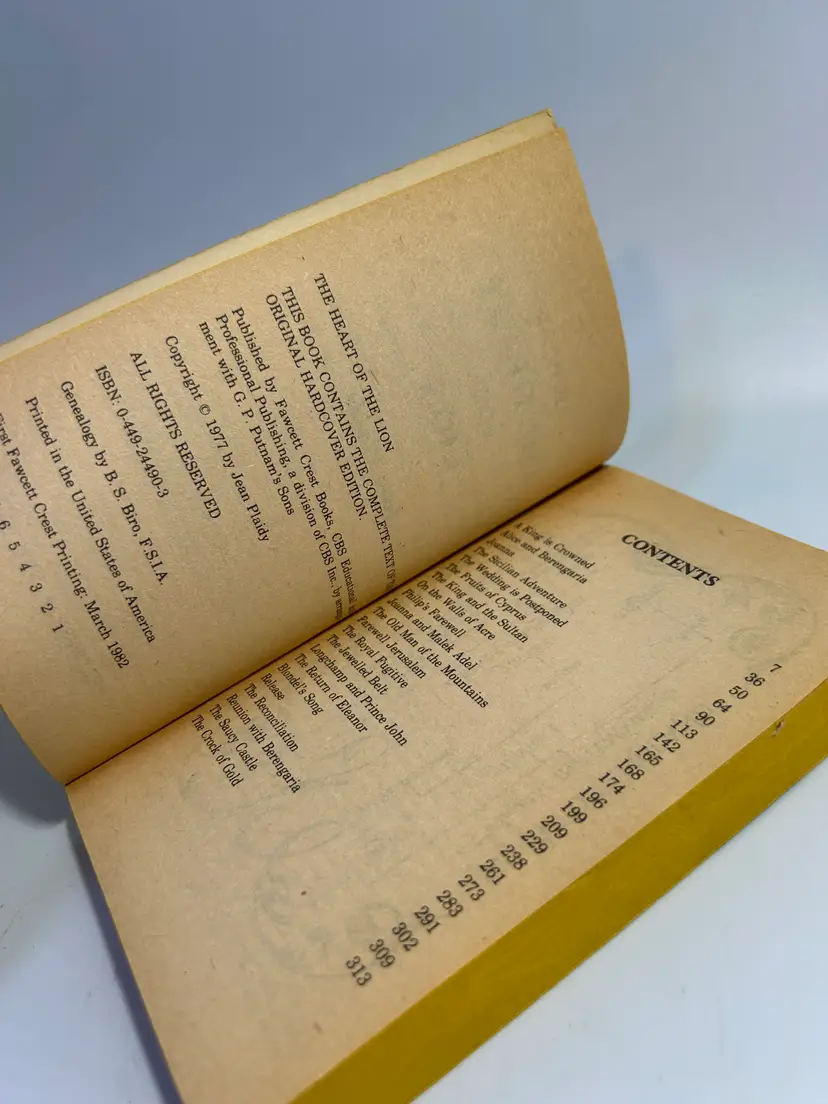 THE HEART OF THE LION
THIS BOOK CONTAINS THE COMPLETE TEXT OF
ORIGINAL HARDCOVER EDITION.
Published by Fawcett Crest Books, CBS Educational
Professional Publishing, a division of CBS Inc., by
ment with G. P. Putnam's Sons
Copyright © 1977 by Jean Plaidy
ALL RIGHTS RESERVED
ISBN: 0-449-24490-3
Genealogy by B. S. Biro, F.S.I.A.
Printed in the United States of America
First Fawcett Crest Printing: March 1982
6 5 4 3 2 1
CONTENTS
A King is Crowned 7
Alice and Berengaria 36
Joanna 50
The Sicilian Adventure 64
The Wedding is Postponed 90
The Fruits of Cyprus 113
The King and the Sultan 142
On the Walls of Acre 165
Philip's Farewell 168
Joanna and Malek Adel 174
The Old Man of the Mountains 196
Farewell Jerusalem 199
The Royal Fugitive 209
The Jewelled Belt 229
Longchamp and Prince John 238
The Return of Eleanor 261
Blondel's Song 273
Release 283
The Reconciliation 291
Reunion with Berengaria 302
The Saucy Castle 309
The Crock of Gold 313